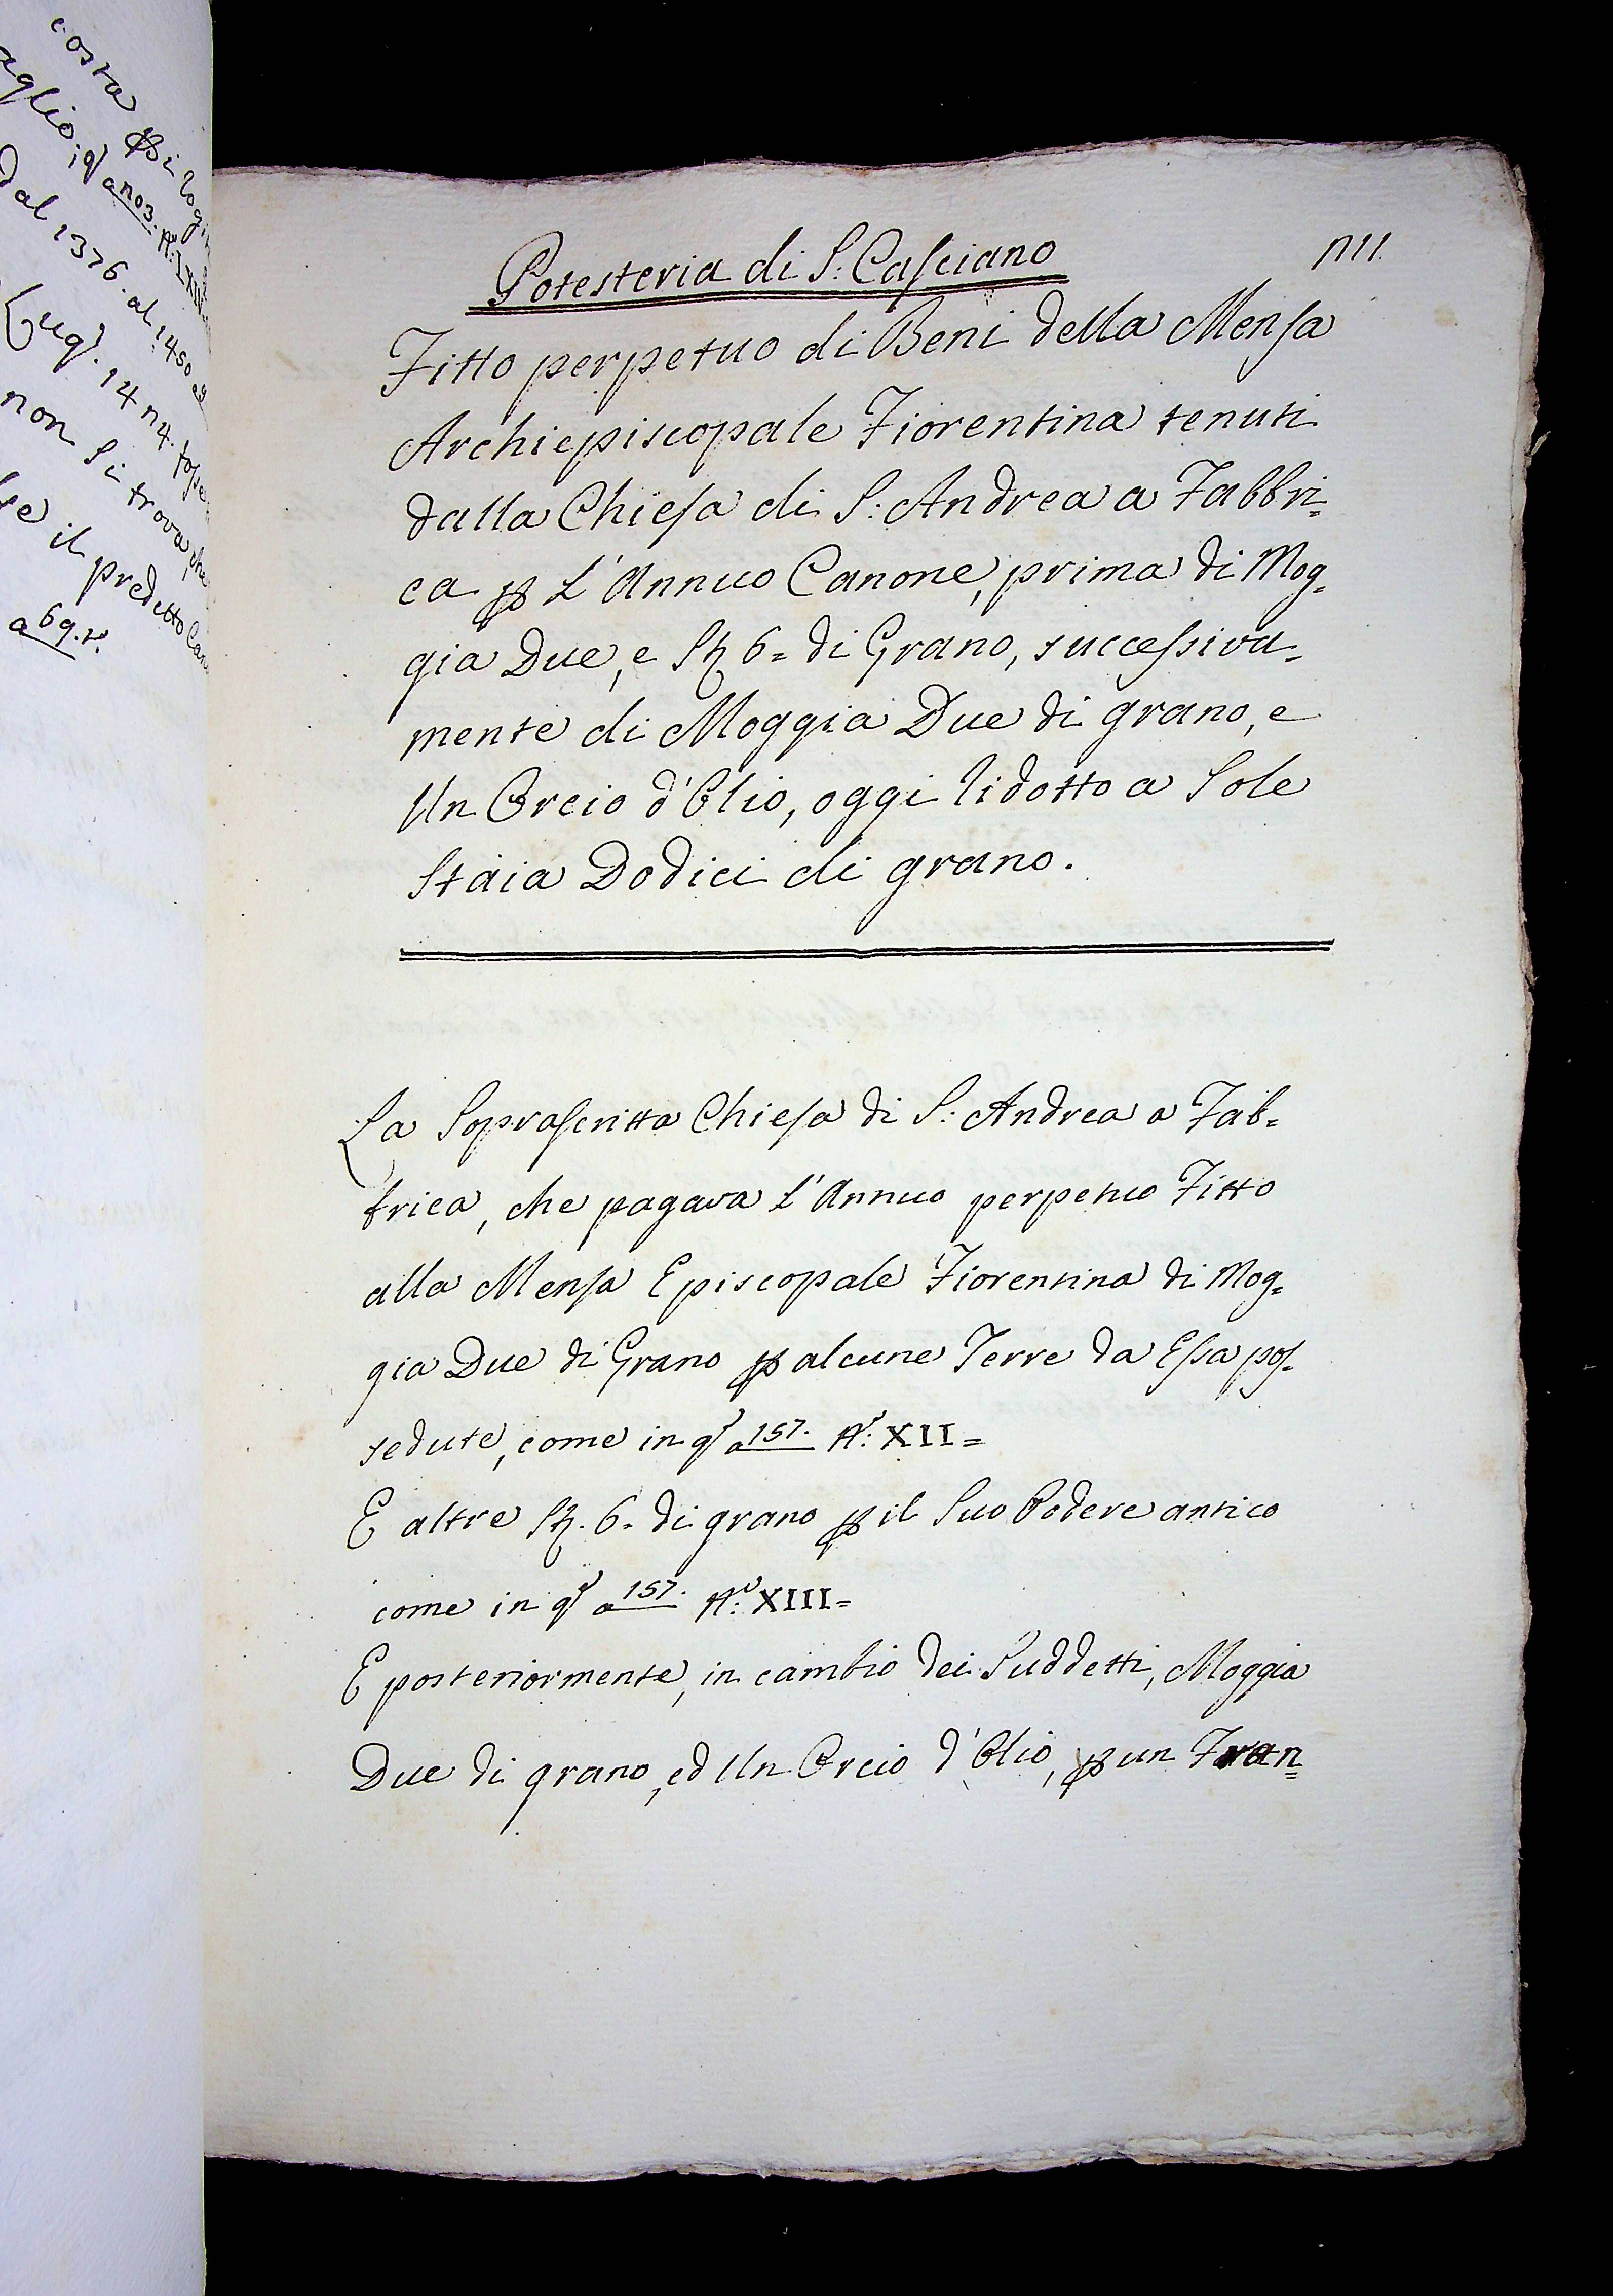 costa
aglio, qº a 1103. Nº: LXIV
Dal 1376. al 1450
Lugº. 1474.
non Si trova, che
il predetto Can
a 69. tº.
1111.
Potesteria di S: Casciano
Fitto perpetuo di Beni della Mensa
Archiepiscopale Fiorentina tenuti
dalla Chiesa di S: Andrea a Fabbri=
ca ꝑ L'Annuo Canone, prima di Mog=
gia Due, e Sta 6= di Grano, successiva=
mente di Moggia Due di grano, e
Un Orcio d'Olio, oggi ridotto a Sole
Staia Dodici di grano.
La Soprascritta Chiesa di S: Andrea a Fab=
brica, che pagava L'Annuo perpetuo Fitto
alla Mensa Episcopale Fiorentina di Mog=
gia Due di Grano ꝑ alcune Terre da Essa pos=
sedute, come in qº a 157. Nº: XII=
E altre Sta. 6= di grano ꝑ il Suo Podere antico
come in qº a 157. Nº: XIII=
E posteriormente, in cambio dei Suddetti, Moggia
Due di grano, ed Un Orcio d'Olio, ꝑ un Fran=